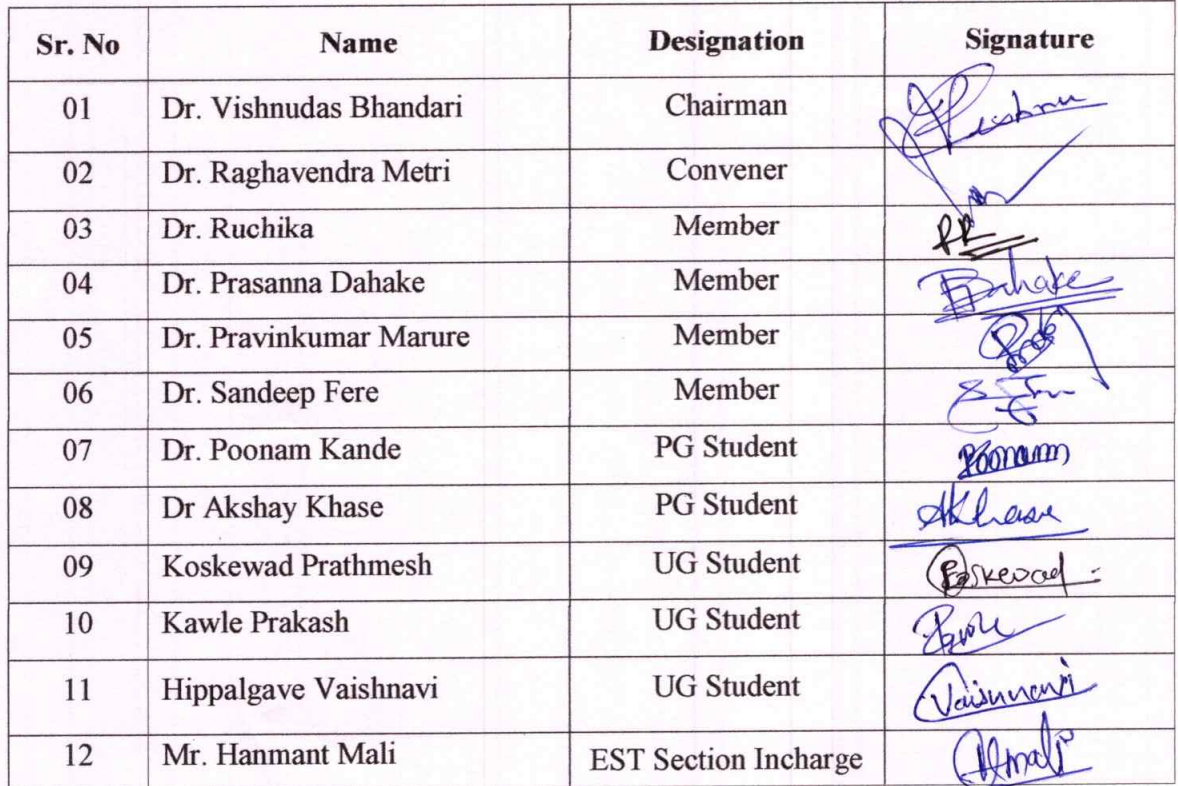 Sr. No Name Designation Signature
01 Dr. Vishnudas Bhandari Chairman Vishnu
02 Dr. Raghavendra Metri Convener
03 Dr. Ruchika Member
04 Dr. Prasanna Dahake Member PDahake
05 Dr. Pravinkumar Marure Member
06 Dr. Sandeep Fere Member
07 Dr. Poonam Kande PG Student Poonam
08 Dr Akshay Khase PG Student AKhase
09 Koskewad Prathmesh UG Student
10 Kawle Prakash UG Student
11 Hippalgave Vaishnavi UG Student Vaishnavi
12 Mr. Hanmant Mali EST Section Incharge HMali